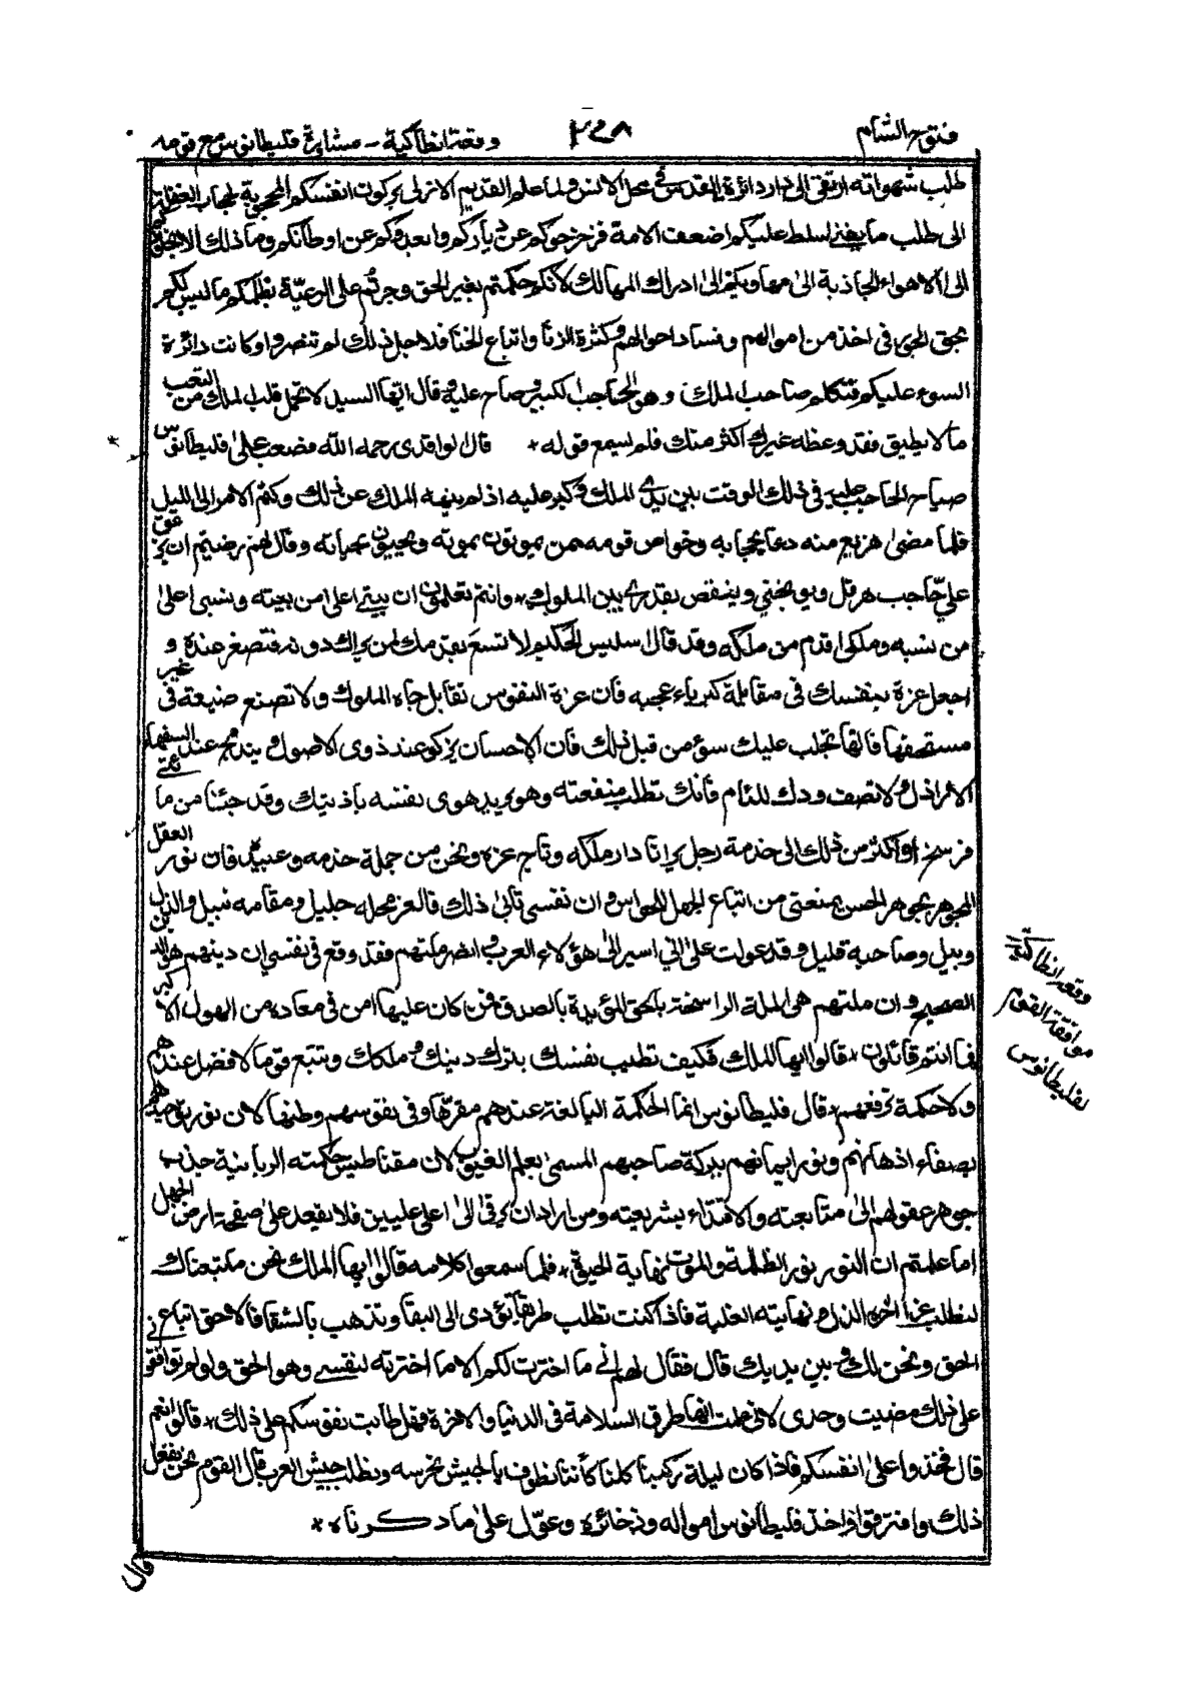 فتوح الشام
٣٥٨
وقعة انطاكية - مشاورة فليطانوس مع قومه
طلب شهواته ارتقى الى دار دائرة القدس في محل الانس ولما علم القديم الازلي بركون انفسكم المحجوبة بحجاب الغفلة
الى طلب ما يفنى سلط عليكم اضعف الامة فزحزحوكم عن دياركم وابعدوكم عن اوطانكم وما ذلك الا
الى الاهواء الجاذبة الى مهاويكم الى ادراك المهالك لانكم حكمتم بغير الحق وجرتم على الرعيّة بظلمكم ما ليس لكم
بحق الحق في اخذ من اموالهم وفساد احوالهم وكثرة الزنا واتباع الخنا فلاجل ذلك لم تنصروا وكانت دائرة
السوء عليكم فتكلم صاحب الملك وهو الحاجب الكبير وصاح عليه وقال ايّها السيد لا تحمل قلب الملك من التعب
ما لا يطيق فقد وعظه غيرك اكثر منك فلم يسمع قوله * قال الواقدى رحمه الله فصعب على فليطانوس
صياح الحاجب عليه في ذلك الوقت بين يدي الملك وكبر عليه اذ لم ينهه الملك عن ذلك وكتم الامر الى الليل
فلما مضى هزيع منه دعا بحجابه وخواص قومه ممن يموتون بموته ويحيون بحياته وقال لهم رضيتم ان يزعق
عليّ حاجب هرقل ويوبخني وينقص بقدري بين الملوك * وانتم تعلمون ان بيتي اعلى من بيته ونسبى اعلى
من نسبه وملكى اقدم من ملكه وقد قال سليس الحكيم لا تسع بقدمك لمن يراك دونه فتصغر عنده و
اجعل عزة بنفسك في مقابلة كبرياء عجبه فان عزة النفوس تقابل جاه الملوك ولا تصنع صنيعة في غير
مستحقها فانها تجلب عليك سوء من قبل ذلك فان الاحسان يزكو عند ذوى الاصول و عند السفهاء
الاراذل ولا تصف ودك للئام فانك تطلب منفعته وهو يريد هوى نفسه باذيتك وقد جئنا من مائتى
فرسخ او اكثر من ذلك الى خدمة رجل يرانا دار ملكه وتاج عزه ونحن من جملة خدمه وعبيده فان نور العقل
المجوهر بجوهر الحس يمنعني من اتباع الجهل للحواس وان نفسى تأبى ذلك فالعز محله جليل ومقامه نبيل والذل
وبيل وصاحبه قليل وقد عولت على اني اسير الى هؤلاء العرب و انصر ملتهم فقد وقع في نفسي ان دينهم هو الدين
الصحيح وان ملتهم هي الملة الراسخة بالحق المؤيدة بالصدق فمن كان عليها امن في معاده من الهول الاكبر
فما انتم قائلون * قالوا ايها الملك فكيف تطيب نفسك بترك دينك و ملكك وتتبع قوما لا فضل عندهم
ولا حكمة ترفعهم * قال فليطانوس انما الحكمة البالغة عندهم مقرها وفي نفوسهم وطنها لان نور توحيدهم
بصفاء اذهانهم ونور ايمانهم ببركة صاحبهم المسمى بعلم الغيوب لان مقناطيس حكمته الربانية جذب
جوهر عقولهم الى متابعته والاقتداء بشريعته ومن اراد ان يرقى الى اعلى عليين فلا يقعد على صفحة ارض الجهل
اما علمتم ان النور نور الظلمة والموت نهاية الحيوة * فلما سمعوا كلامه قالوا ايها الملك نحن ما تبعناك
لنطلب الذل ونهايته العلية فاذا كنت تطلب طريقا تؤدى الى البقا وتذهب بالشقا فالاحق اتباع
الحق ونحن لك و بين يديك قال فقال لهم اني ما اخترت لكم الا ما اخترته لنفسى وهو الحق ولو لم توافقونى
على ذلك مضيت وحدى لانى علمت انها طرق السلامة في الدنيا والاخرة فهل طابت نفوسكم على ذلك * قالوا نعم
قال فخذوا على انفسكم فاذا كان ليلة ركبنا كلنا كأننا نطوف بالجيش نحرسه ونطلب جيش العرب قال القوم نحن نفعل
ذلك وافترقوا واخذ فليطانوس امواله وذخائره وعوّل على ما ذكرناه *
وقعة انطاكية
موافقة القوم
لفليطانوس
قال